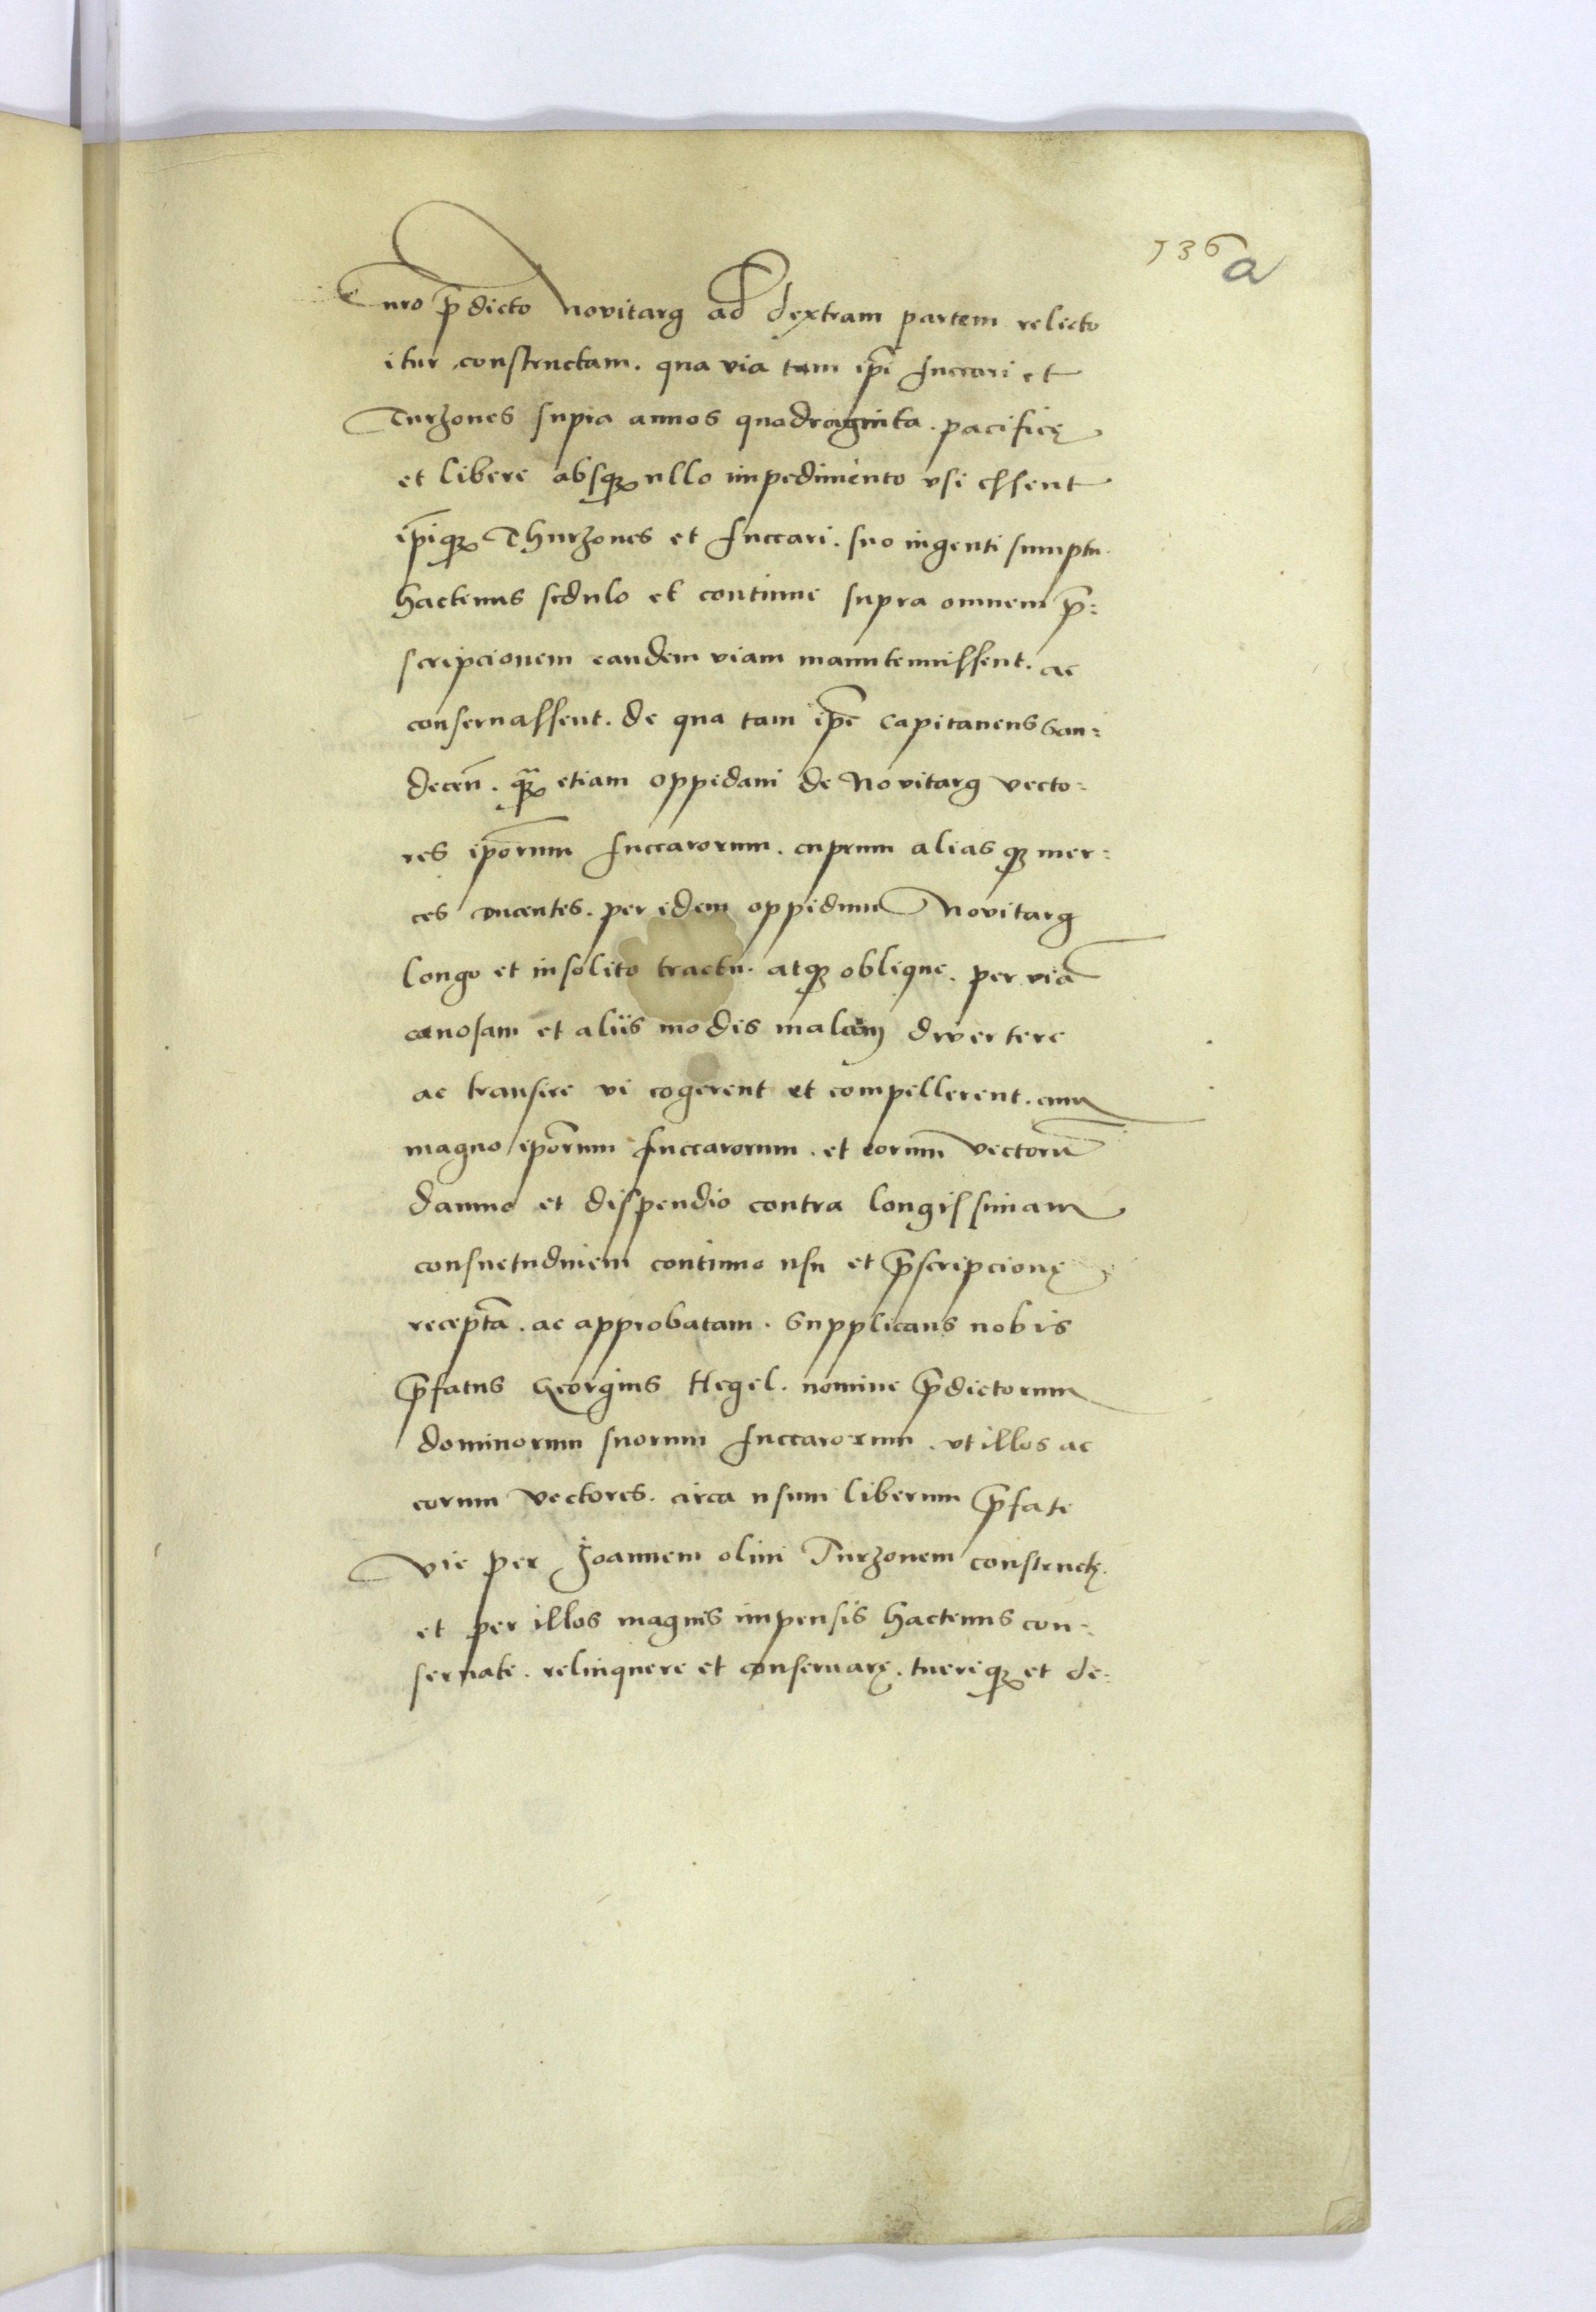 136 a
nr̃o p̄dicto Novitarg ad dextram partem relicto
itur constructam. qua via tam ip̄i Fuccari et
Turzones supra annos quadraginta. pacificę
et libere absq₃ ullo impedimento vsi essent
ip̄iq₃ Thurzones et Fuccari. suo ingenti sumptu.
hactenus sedulo et continue supra omnem p̄:
scripcionem eandem viam manutenuissent. ac
conseruassent. de qua tam ip̄e Capitaneus San:
decen̄. q̄₃ etiam oppidani de Novitarg vecto:
res ip̄orum Fuccarorum. cuprum aliasq₃ mer:
ces ducentes. per idem oppidum Novitarg
longo et insolito tractu. atq₃ oblique. per viā
cenosam et aliis modis malam divertere
ac transire vi cogerent et compellerent. cum
magno ip̄orum Fuccarorum. et eorum vectorū
damno et dispendio contra longissimam
consuetudinem continuo usu et p̄scripcionę
receptā. ac approbatam. Supplicans nobis
p̄fatus Georgius Hegel. nomine p̄dictorum
dominorum suorum Fuccarorum. vt illos ac
eorum vectores. circa usum liberum p̄fate
vie per Joannem olim Turzonem constructę.
et per illos magnis impensis hactenus con:
seruate. relinquere et conseruarę. tueriq₃ et de: